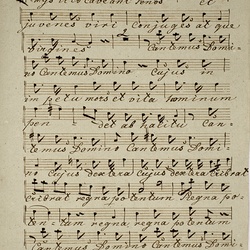 et
juvenes viri Conjuges at que
virgines Cantemus Domi-
no Cantemus Domino Cujus in
impetu mors et vita hominum
pen det ab halitu Can-
temus Domino Cantemus Domi-
no Cujus dextera Cujus dextera cribrat
cribrat regna potentum Regna po-
ten-tum regna regna potentum
Cantemus Domino Cantemus Domi-